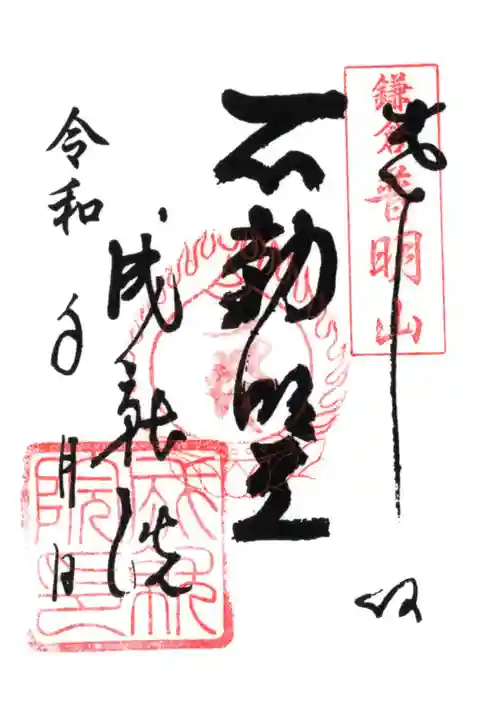 鎌倉普明山
奉拝
不動明王
成就院
令和 年 月 日
成就院